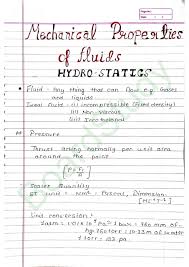 Mechanical Properties
of fluids
HYDRO-STATICS
Fluid : Any thing that can flow e.g. Gases
and liquids
Ideal fluid : (i) incompressible (fixed density)
(ii) Non-viscous
(iii) Irrotational
Pressure
Thrust acting normally per unit area
around the point
[P = F/A]
Scalar Quantity
SI unit = N/m² = Pascal, Dimension
[ML⁻¹T⁻²]
Unit conversion :
1 atm = 1.01 x 10⁵ 1 bar = 760 mm of
Hg 760 torr = 10.33 m of water
1 torr = 133 pa